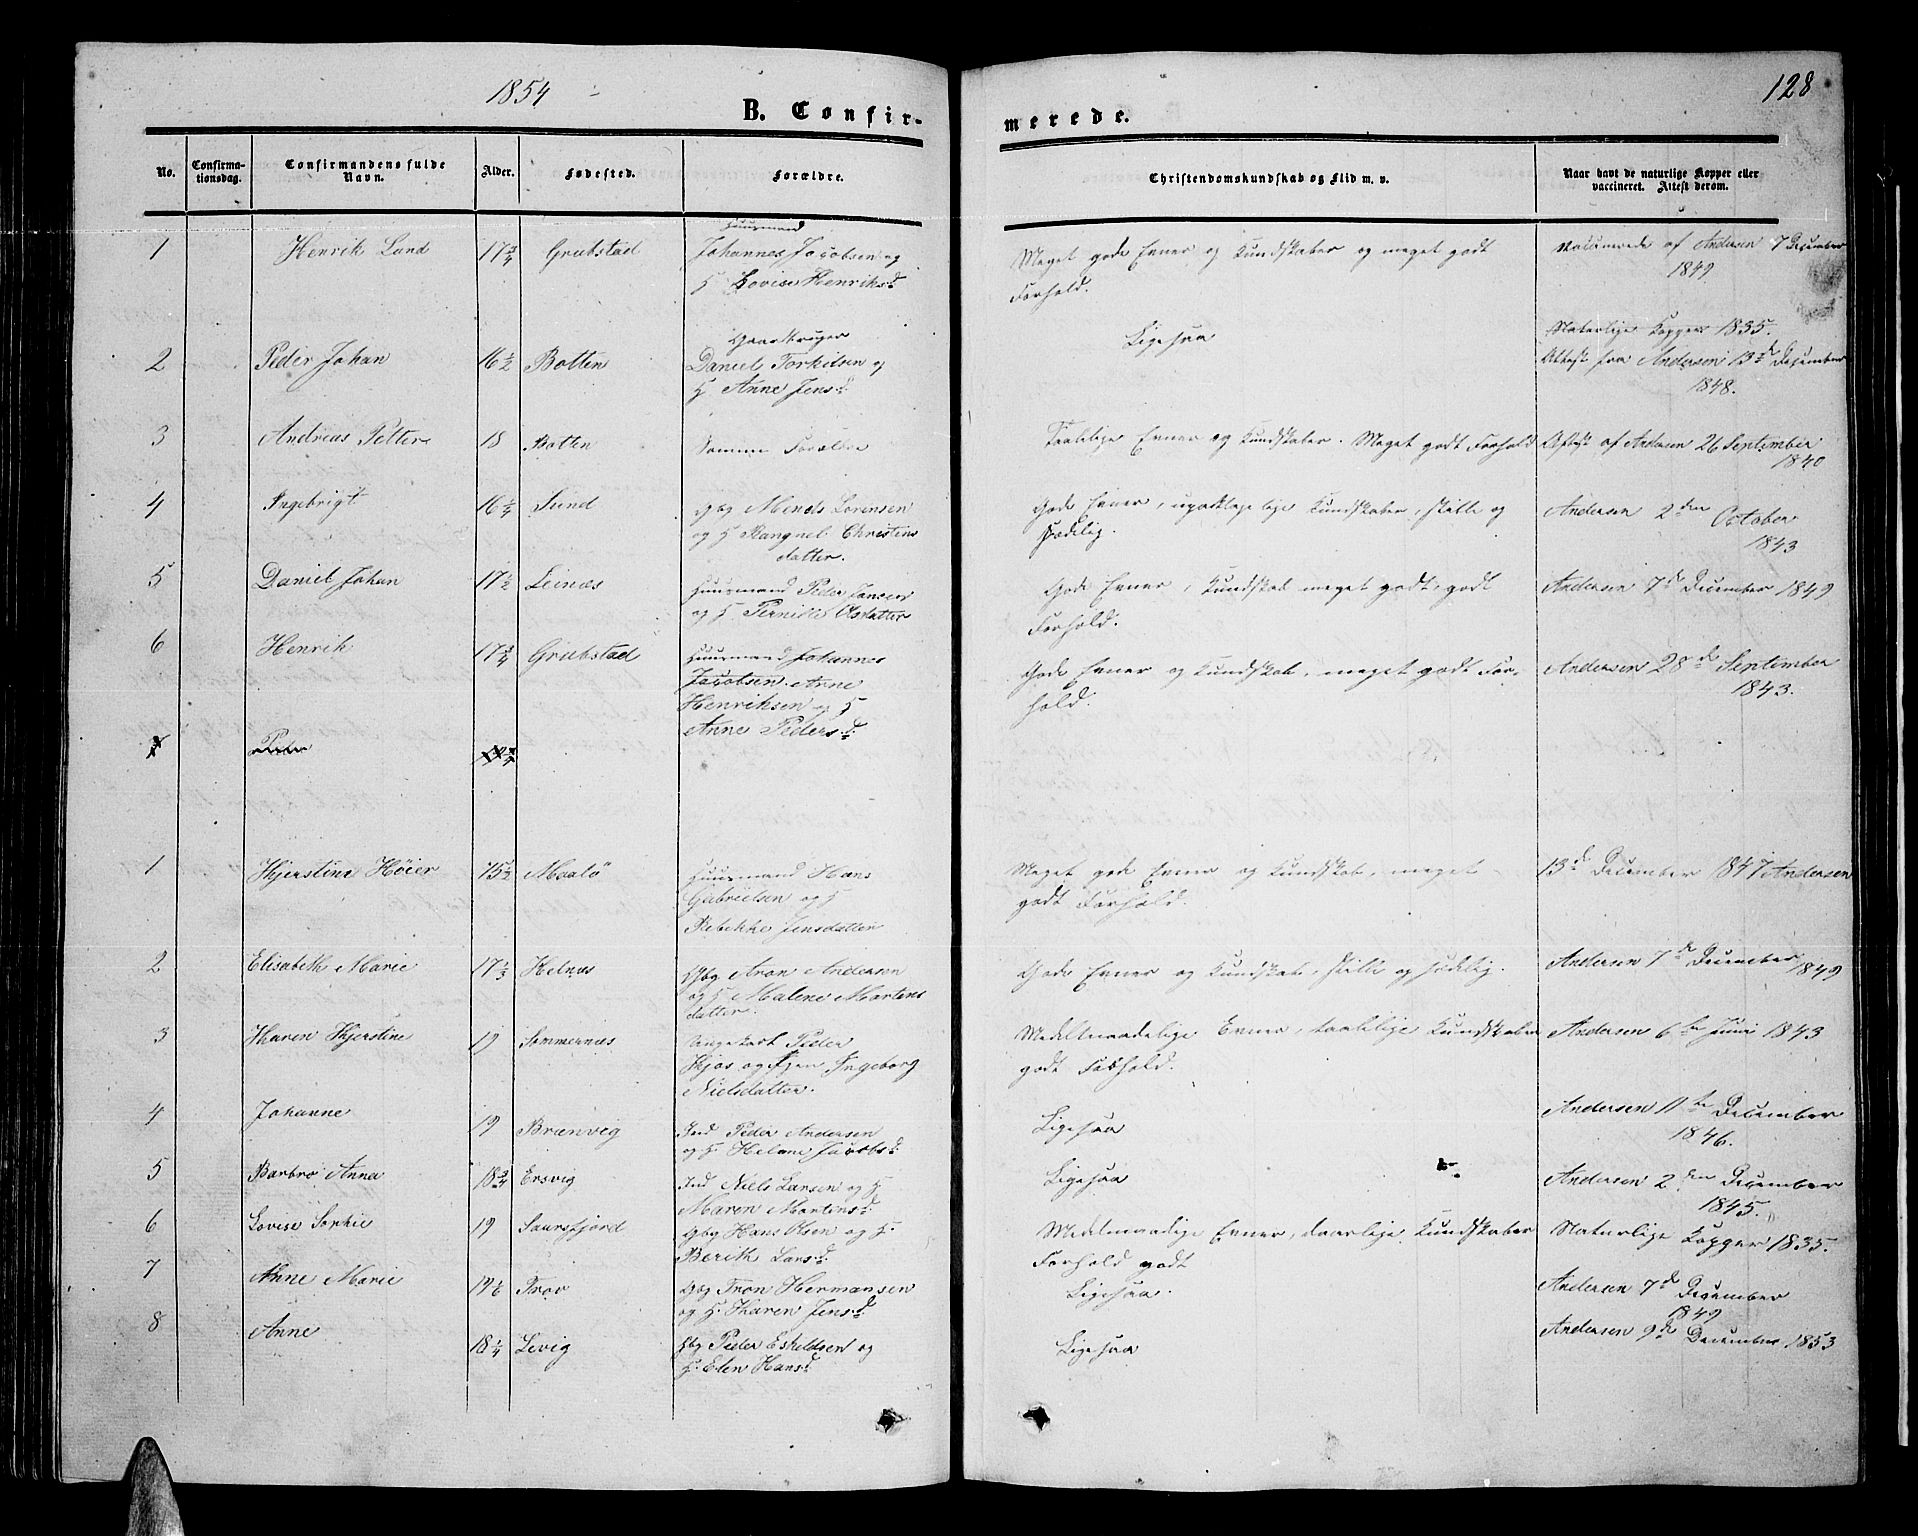 1854
128
B. Confir-
merede.
No.
Confirma-
tionsdag.
Confirmandens fulde
Navn.
Alder.
Fødested.
Forældre.
Christendomskundskab og Flid m. v.
Naar havt de naturlige Kopper eller
vaccineret. Attest derom.
Huusmand
1 Henrik Lund 17 3/4 Grubstad Johannes Jacobsen og Meget gode Evner og Kundskaber og meget godt Vaccinerede af Andersen 7 December
H Lovise Henriksd. Forhold. 1849
Gaardbruger Naturlige Kopper 1835.
2 Peder Johan 16 1/2 Botten Daniel Torkilsen og Ligesaa Attest fra Andersen 13de December
H Anne Jensd. 1848.
3 Andreas Petter 18 Botten Samme Forældre Taalelige Evner og Kundskaber. Meget godt Forhold Attest af Andersen 26 September
1840
4 Ingebrigt 16 1/4 Sund Gbg Lorensen Gode Evner, Kundskaber, stille og Andersen 2den October
og H Rangnel Christins sædelig. 1843
datter.
5 Daniel Johan 17 1/2 Leinæs Huusmand Peder Jansen Gode Evner, Kundskab meget godt, godt Andersen 7de December 1849
og H. Pernille Olsdatter Forhold.
6 Henrik 17 3/4 Grubstad Huusmand Johannes Gode Evner og Kundskab, meget godt For- Andersen 28de September
Jacobsen. Arne hold. 1843.
Henriksen og H
Anne Pedersd.
7 Peder
1 Kjerstine Høier 15 1/2 Maalö Huusmand Hans Meget gode Evner og Kundskab, meget 13de December 1847 Andersen
Gabrielsen og H godt Forhold.
Rebekke Jensdatter
2 Elisabeth Marie 17 1/3 Helnæs Gbg Aron Andersen Gode Evner og Kundskab, stille og sædelig. Andersen 7de December
og H Malene Martens 1849
datter.
3 Karen Kjerstine 19 Sommernæs Ungekarl Peder Medelmaadelige Evner, taalelige Kundskaber Andersen 6te Juni 1843
Kjos og Pigen Ingeborg godt Forhold.
Nielsdatter.
4 Johanne 19 Brænvig Ind Peder Andersen Ligesaa Andersen 11te December
og H. Helene Jacobsd. 1846.
5 Barbro Anna 18 3/4 Ersvig Ind Niels Larsen og H Ligesaa Andersen 2den December
Maren Martensd. 1845.
6 Lovise Sophie 19 Saursfjord Gbg Hans Olsen og H. Medelmaadige Evner, daarlige Kundskaber Naturlige Kopper 1835.
Berith Larsd. Forhold godt
7 Anne Marie 19 1/2 Trov Gbg Tron Hermansen Ligesaa. Andersen 7de December
og H. Karen Jensd. 1849
8 Anne 18 1/4 Levig Gbg Peder Eskildsen og Ligesaa Andersen 9de December 1853
H. Elen Hansd.